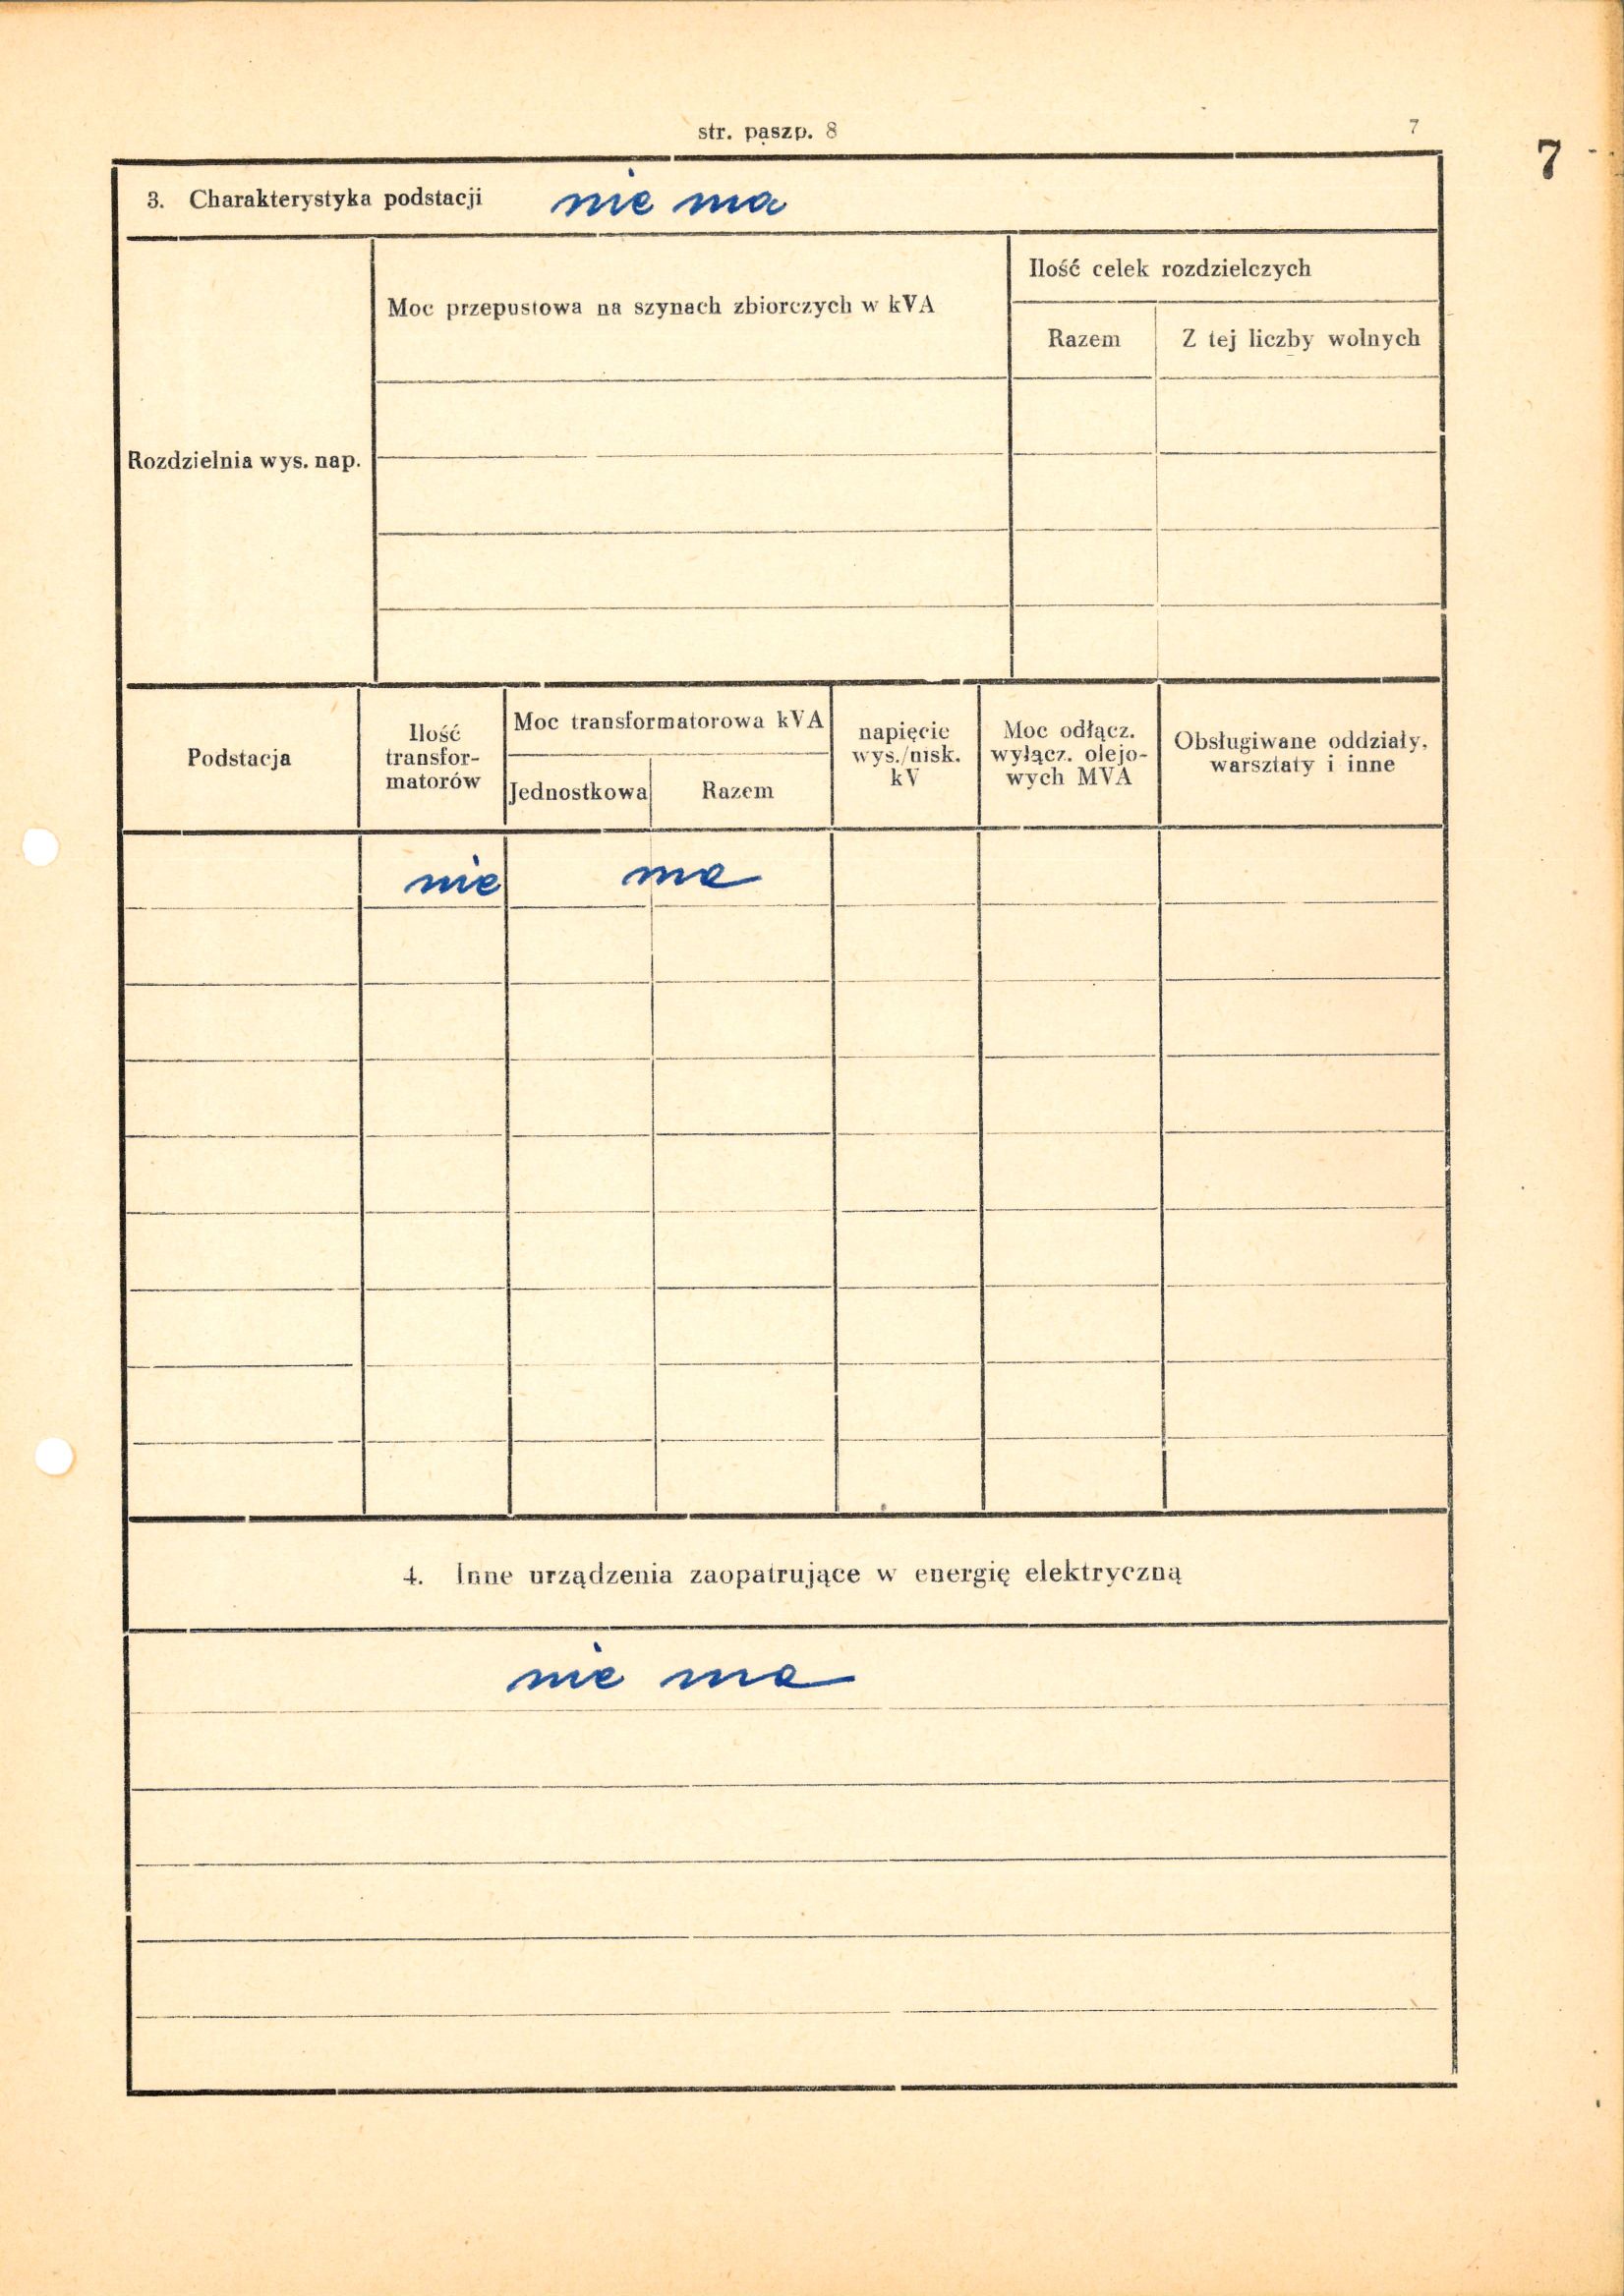 str. paszp. 8
7
7
3. Charakterystyka podstacji nie ma
Rozdzielnia wys. nap.
Moc przepustowa na szynach zbiorczych w kVA
Ilość celek rozdzielczych
Razem
Z tej liczby wolnych
Podstacja
Ilość
transfor-
matorów
Moc transformatorowa kVA
Jednostkowa
Razem
napięcie
wys./nisk.
kV
Moc odłącz.
wyłącz. olejo-
wych MVA
Obsługiwane oddziały,
warsztaty i inne
nie ma
4. Inne urządzenia zaopatrujące w energię elektryczną
nie ma